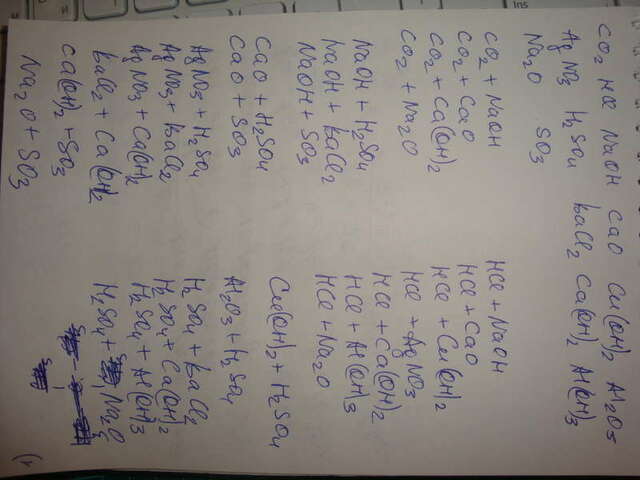 CO2 HCl NaOH CaO Cu(OH)2 Al2O3
AgNO3 H2SO4 BaCl2 Ca(OH)2 Al(OH)3
Na2O SO3
CO2 + NaOH
CO2 + CaO
CO2 + Ca(OH)2
CO2 + Na2O
NaOH + H2SO4
NaOH + BaCl2
NaOH + SO3
CaO + H2SO4
CaO + SO3
AgNO3 + H2SO4
AgNO3 + BaCl2
AgNO3 + Ca(OH)2
BaCl2 + Ca(OH)2
Ca(OH)2 + SO3
Na2O + SO3
HCl + NaOH
HCl + CaO
HCl + Cu(OH)2
HCl + AgNO3
HCl + Ca(OH)2
HCl + Al(OH)3
HCl + Na2O
Cu(OH)2 + H2SO4
Al2O3 + H2SO4
H2SO4 + BaCl2
H2SO4 + Ca(OH)2
H2SO4 + Al(OH)3
H2SO4 + Na2O
Ins